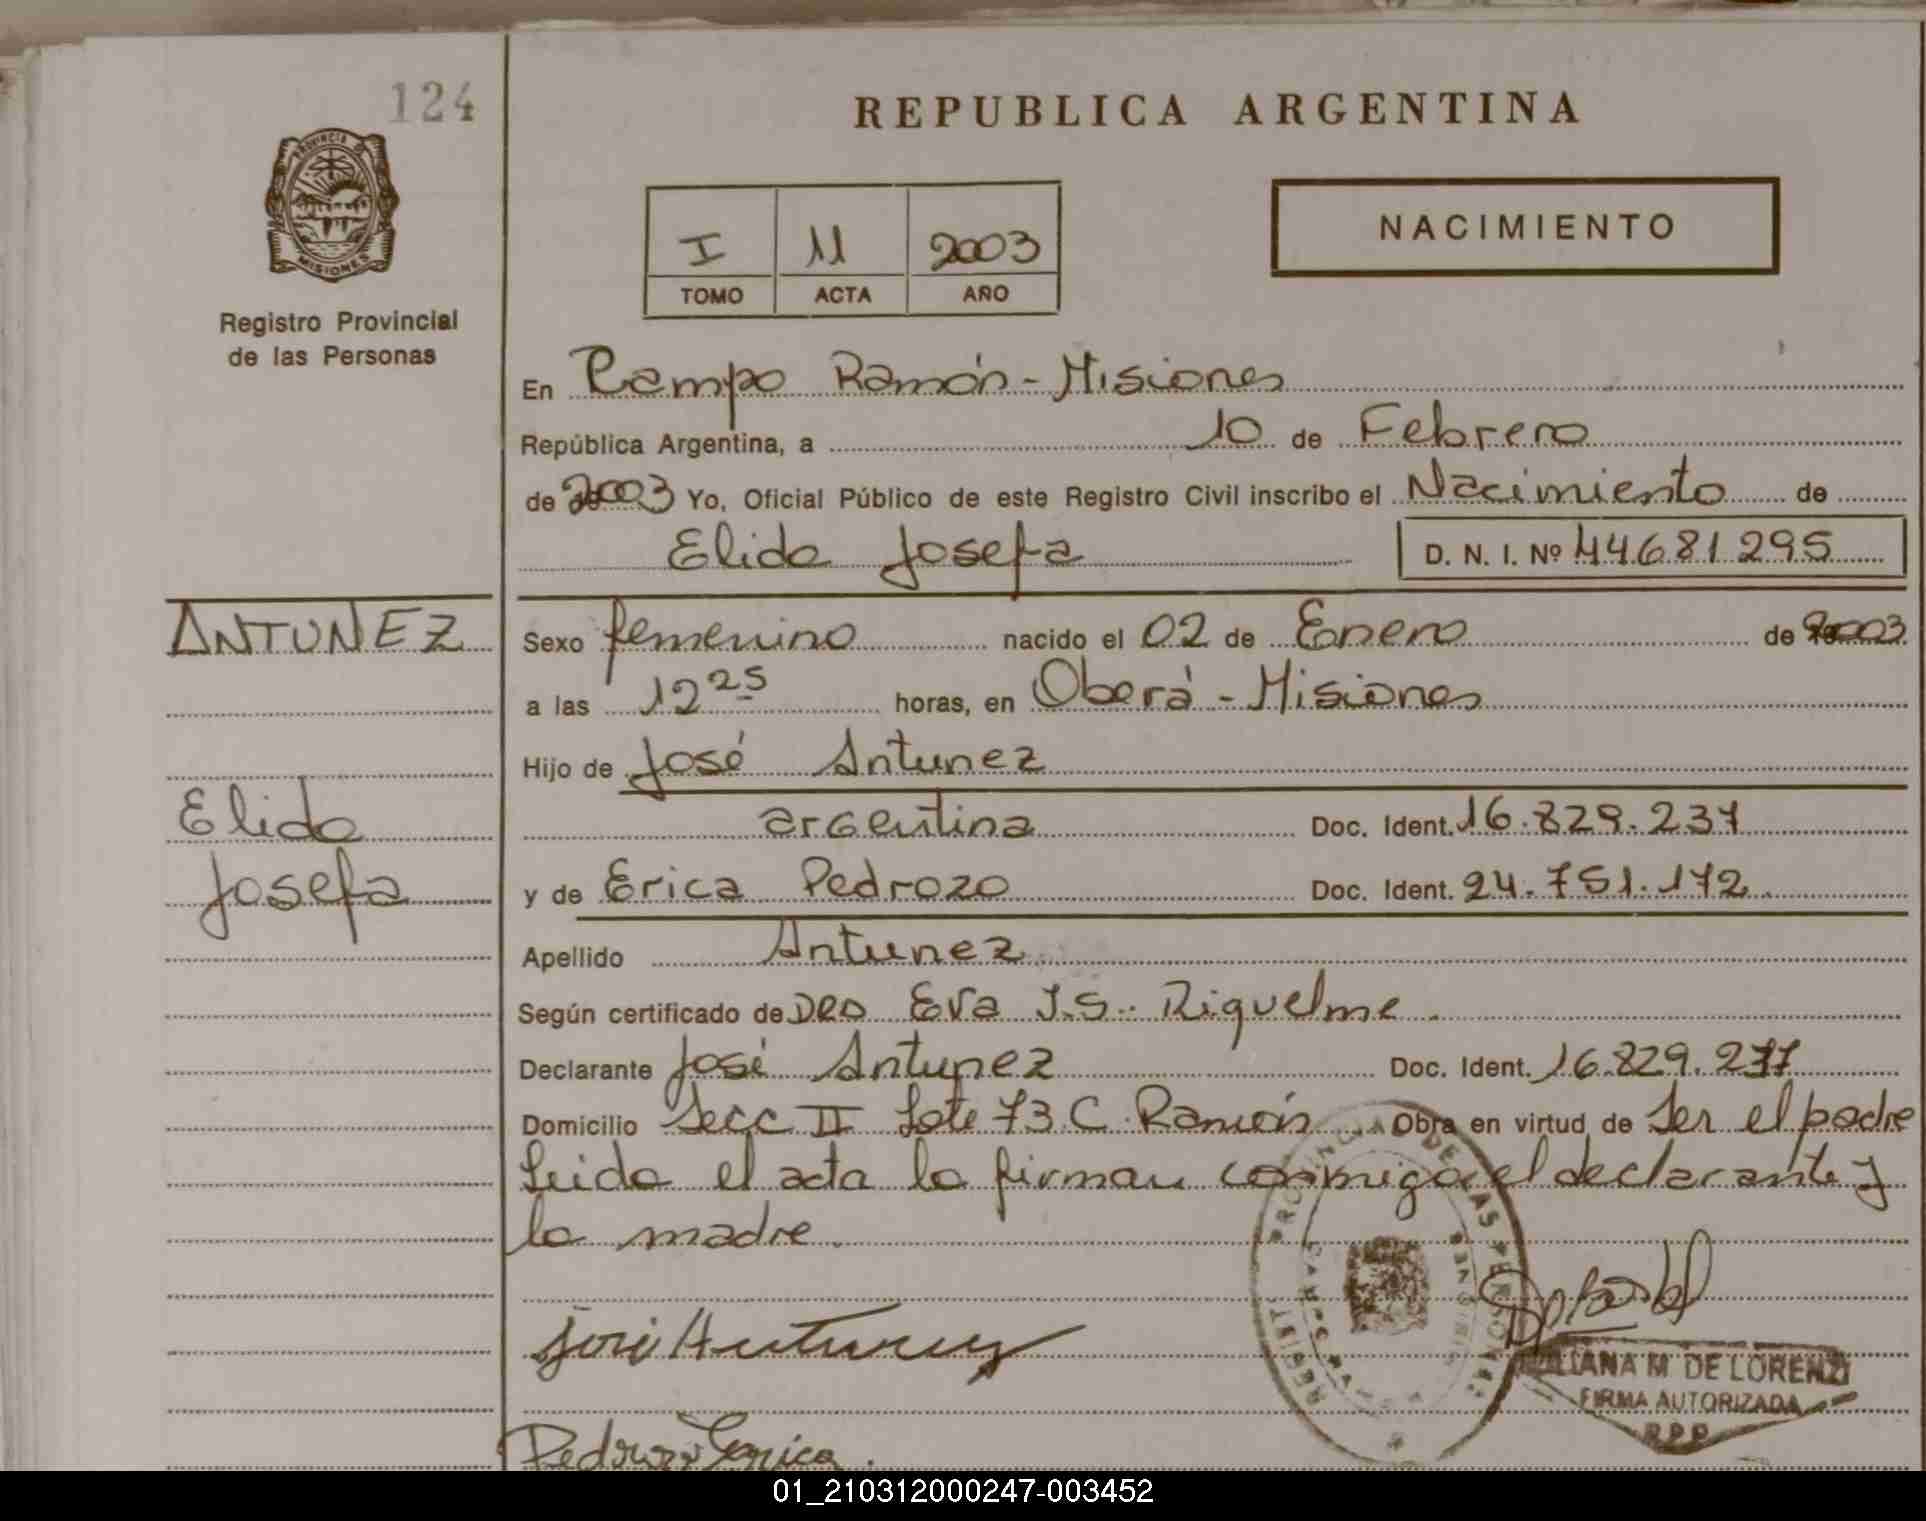 124
PROVINCIA DE
MISIONES
Registro Provincial
de las Personas
REPUBLICA ARGENTINA
I 11 2003
TOMO ACTA AÑO
NACIMIENTO
En Campo Ramón - Misiones
República Argentina, a 10 de Febrero
de 2003 Yo, Oficial Público de este Registro Civil inscribo el Nacimiento de
Elida Josefa D. N. I. Nº 44.681.295
ANTUNEZ
Elida
Josefa
Sexo femenino nacido el 02 de Enero de 2003
a las 12 25 horas, en Oberá - Misiones
Hijo de José Antunez
argentina Doc. Ident. 16.829.237
y de Erica Pedrozo Doc. Ident. 24.751.172
Apellido Antunez
Según certificado de Eva I.S. Riquelme.
Declarante José Antunez Doc. Ident. 16.829.237
Domicilio Secc II Lote 73 C. Ramón Obra en virtud de Ser el padre
Leida el acta la firman conmigo el declarante y
la madre.
José Antunez
LILIANA M. DE LORENZI
FIRMA AUTORIZADA
R.P.P.
Pedrozo Erica.
01_210312000247-003452